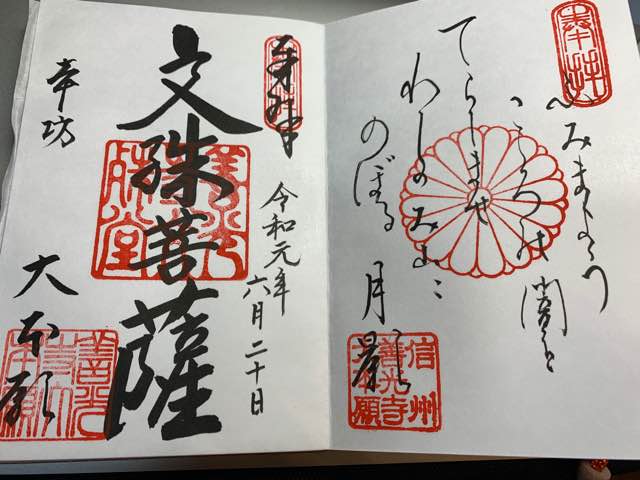 奉拝
ふみまよう
こころの闇を
てらしませ
わしのみ
のぼる月影
信州
善光寺
大本願
令和元年六月二十日
文殊菩薩
大本願
善光
寺大
本願